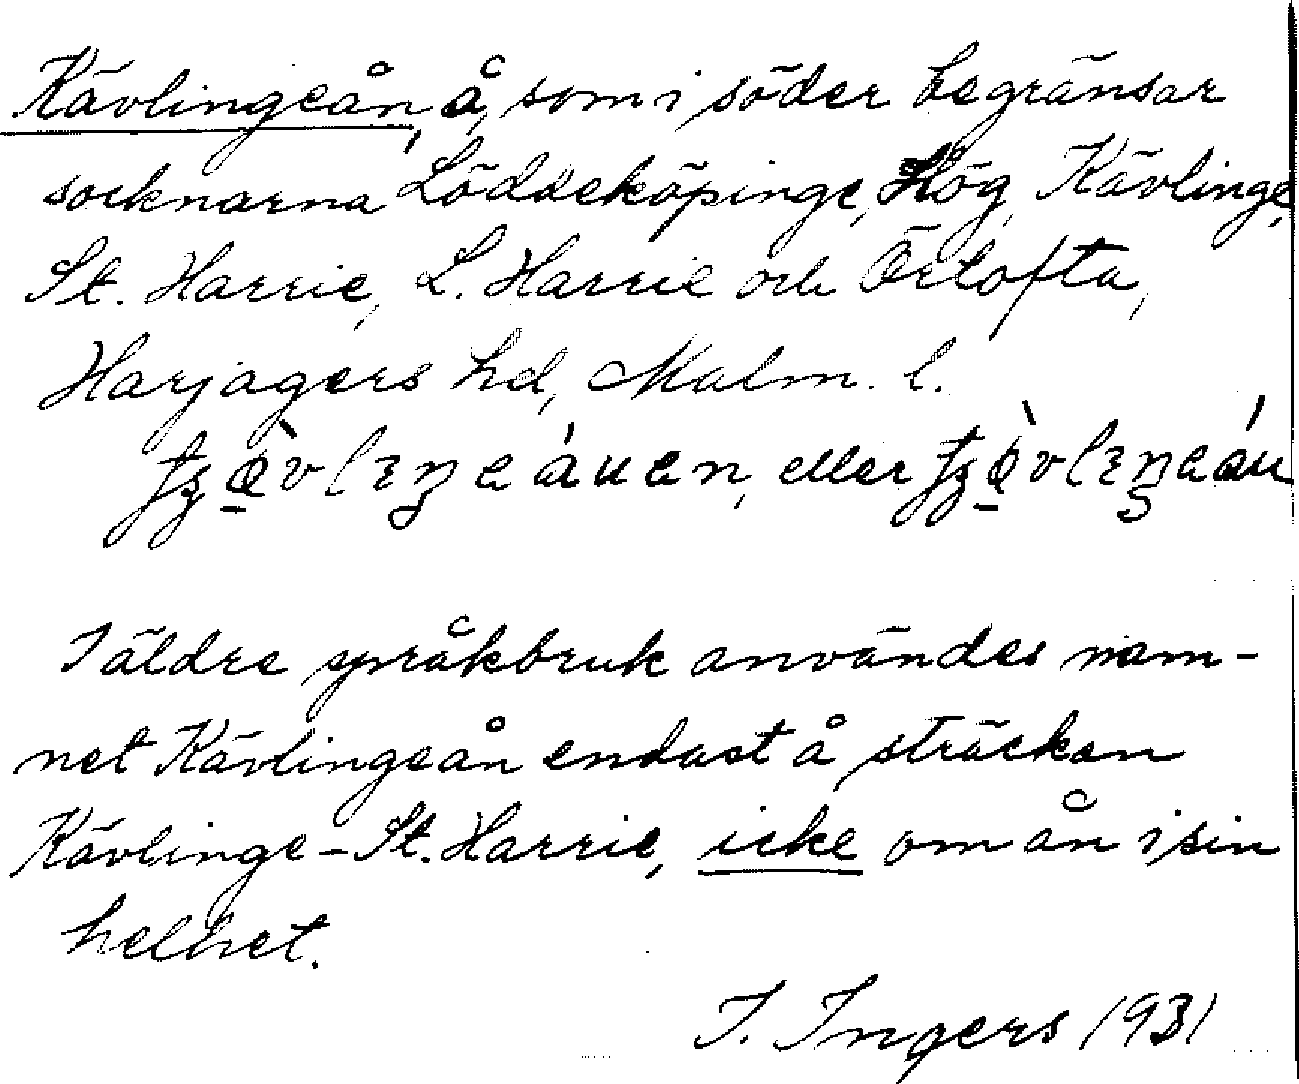 Kävlingeån, å, som i söder begränsar
socknarna Löddeköpinge, Hög, Kävlinge,
St. Harrie, L. Harrie och Örtofta,
Harjagers hd, Malm. l.
eller
I äldre språkbruk användes nam-
net Kävlingeån endast å sträckan
Kävlinge-St. Harrie, icke om ån i sin
helhet.
I. Ingers 1931